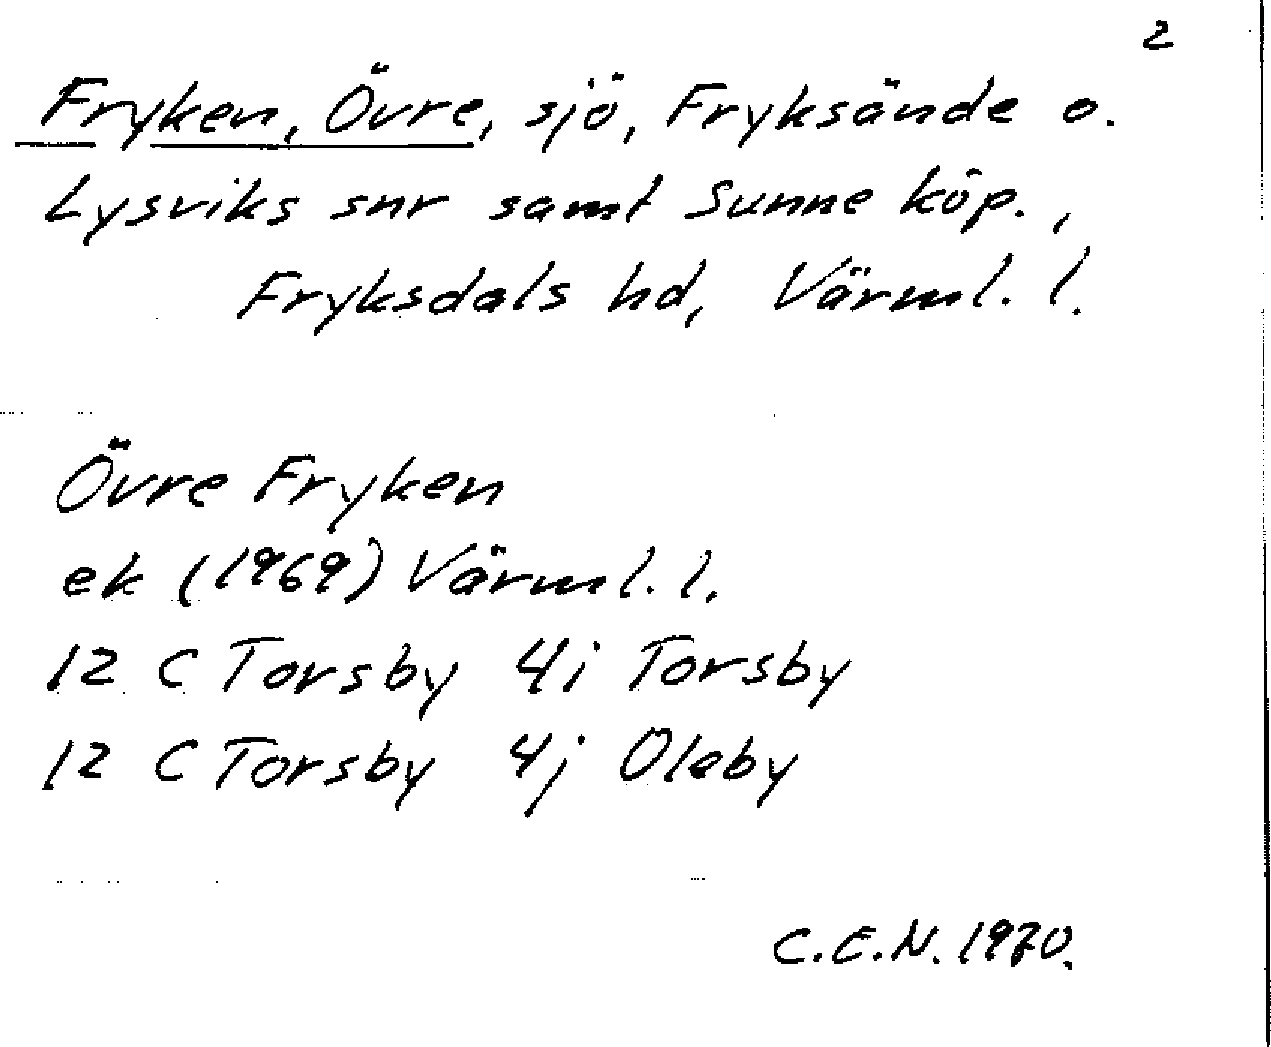 2
Fryken, Övre, sjö, Fryksände o.
Lysviks snr samt Sunne köp.,
Fryksdals hd, Värml. l.
Övre Fryken
ek (1969) Värml. l.
12 C Torsby 4i Torsby
12 C Torsby 4j Oleby
C.E.N. 1970.